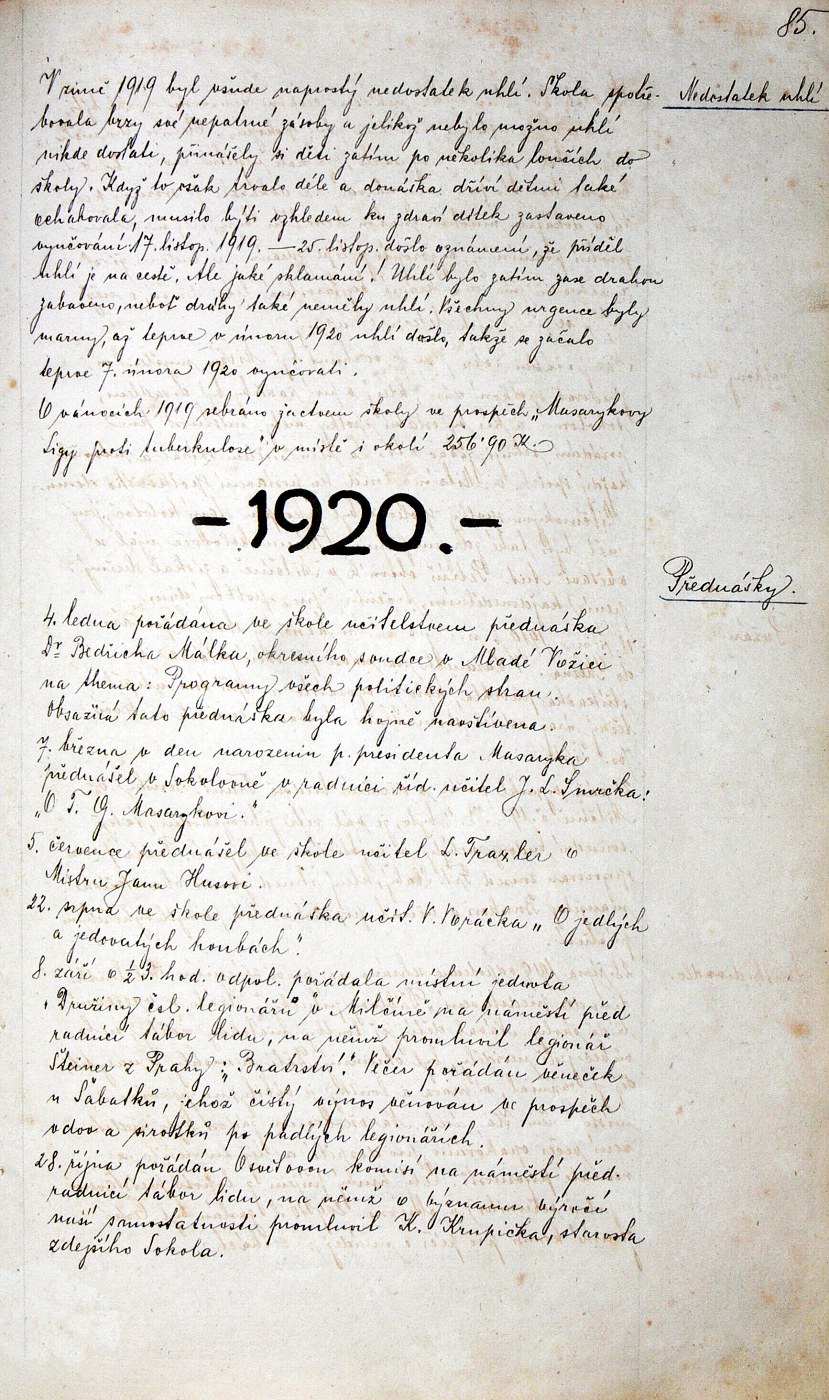 85.
V zimě 1919 byl všude naprostý nedostatek uhlí. Škola spotře-
Nedostatek uhlí
bovala brzy své nepatrné zásoby a jelikož nebylo možno uhlí
nikde dostati, přinášely si děti zatím po několika loučích do
školy. Když to však trvalo déle a donáška dříví dětmi také
ochabovala, musilo býti vzhledem ku zdraví dítek zastaveno
vyučování 17. listop. 1919. — 25. listop. došlo oznámení, že příděl
uhlí je na cestě. Ale jaké sklamání! Uhlí bylo zatím zase drahou
zabaveno, neboť dráhy také neměly uhlí. Všechny urgence byly
marny, až teprve v únoru 1920 uhlí došlo, takže se začalo
teprve 7. února 1920 vyučovati.
O vánocích 1919 sebráno žactvem školy ve prospěch „Masarykovy
Ligy proti tuberkulose" v místě i okolí 256·90 K.
- 1920. -
Přednášky.
4. ledna pořádána ve škole učitelstvem přednáška
Dr Bedřicha Málka, okresního soudce v Mladé Vožici
na thema: Programy všech politických stran.
Obsažná tato přednáška byla hojně navštívena.
7. března v den narozenin p. presidenta Masaryka
přednášel v Sokolovně v radnici říd. učitel J. L. Smrčka:
„O T. G. Masarykovi."
5. července přednášel ve škole učitel L. Traxler o
Mistru Janu Husovi.
22. srpna ve škole přednáška učit. V. Voráčka „O jedlých
a jedovatých houbách".
8. září o ½ 3. hod. odpol. pořádala místní jednota
„Družiny čsl. legionářů" v Milčíně na náměstí před
radnicí tábor lidu, na němž promluvil legionář
Šteiner z Prahy: „Bratrství." Večer pořádán věneček
u Šabatků, jehož čistý výnos věnován ve prospěch
vdov a sirotků po padlých legionářích.
28. října pořádán Osvětovou komisí na náměstí před
radnicí tábor lidu, na němž o významu výročí
naší samostatnosti promluvil K. Krupička, starosta
zdejšího Sokola.